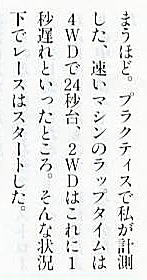 まうほど。プラクティスで私が計測
した、速いマシンのラップタイムは
4WDで24秒台、2WDはこれに1
秒遅れといったところ。そんな状況
下でレースはスタートした。